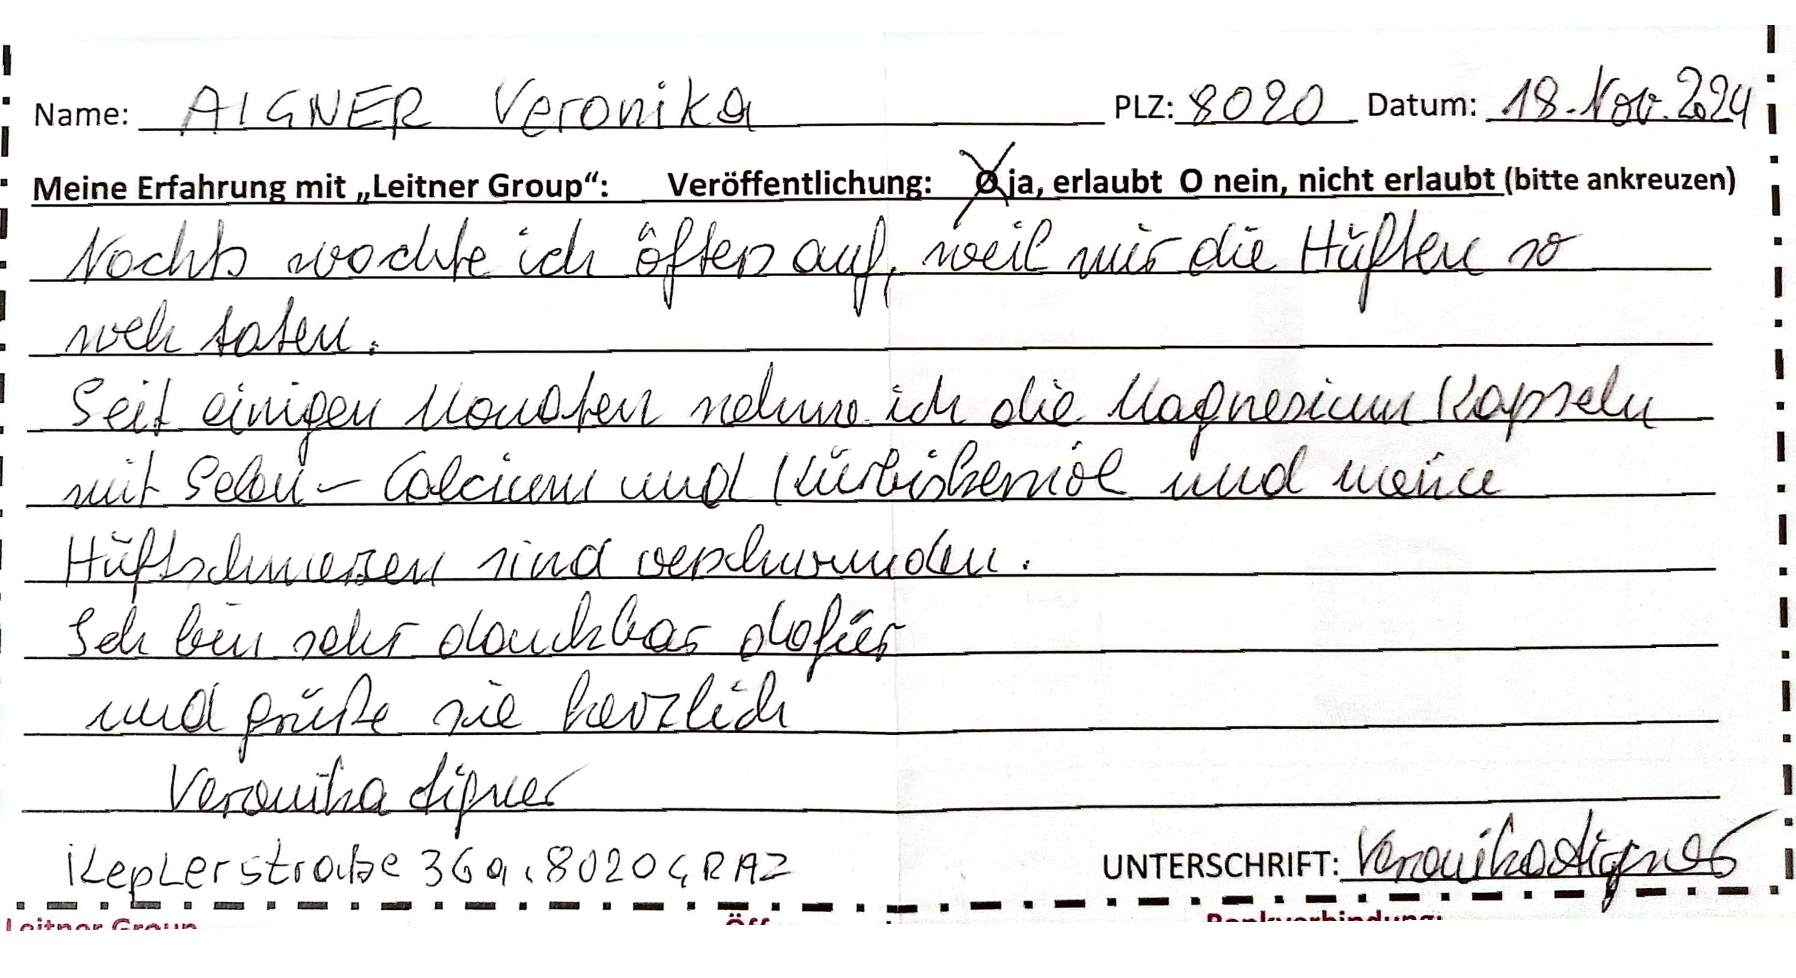 Name: AIGNER Veronika PLZ: 8020 Datum: 18. Nov. 2024
Meine Erfahrung mit „Leitner Group“: Veröffentlichung: O ja, erlaubt O nein, nicht erlaubt (bitte ankreuzen)
Nachts wachte ich öfters auf, weil mir die Hüften so
weh taten.
Seit einigen Monaten nehme ich die Magnesium Kapseln
mit Selen - Calcium und Kürbiskernöl und meine
Hüftschmerzen sind verschwunden.
Ich bin sehr dankbar dafür
und grüße sie herzlich
Veronika Aigner
Keplerstraße 36a, 8020 GRAZ UNTERSCHRIFT: Veronika Aigner
Leitner Group Bankverbindung: